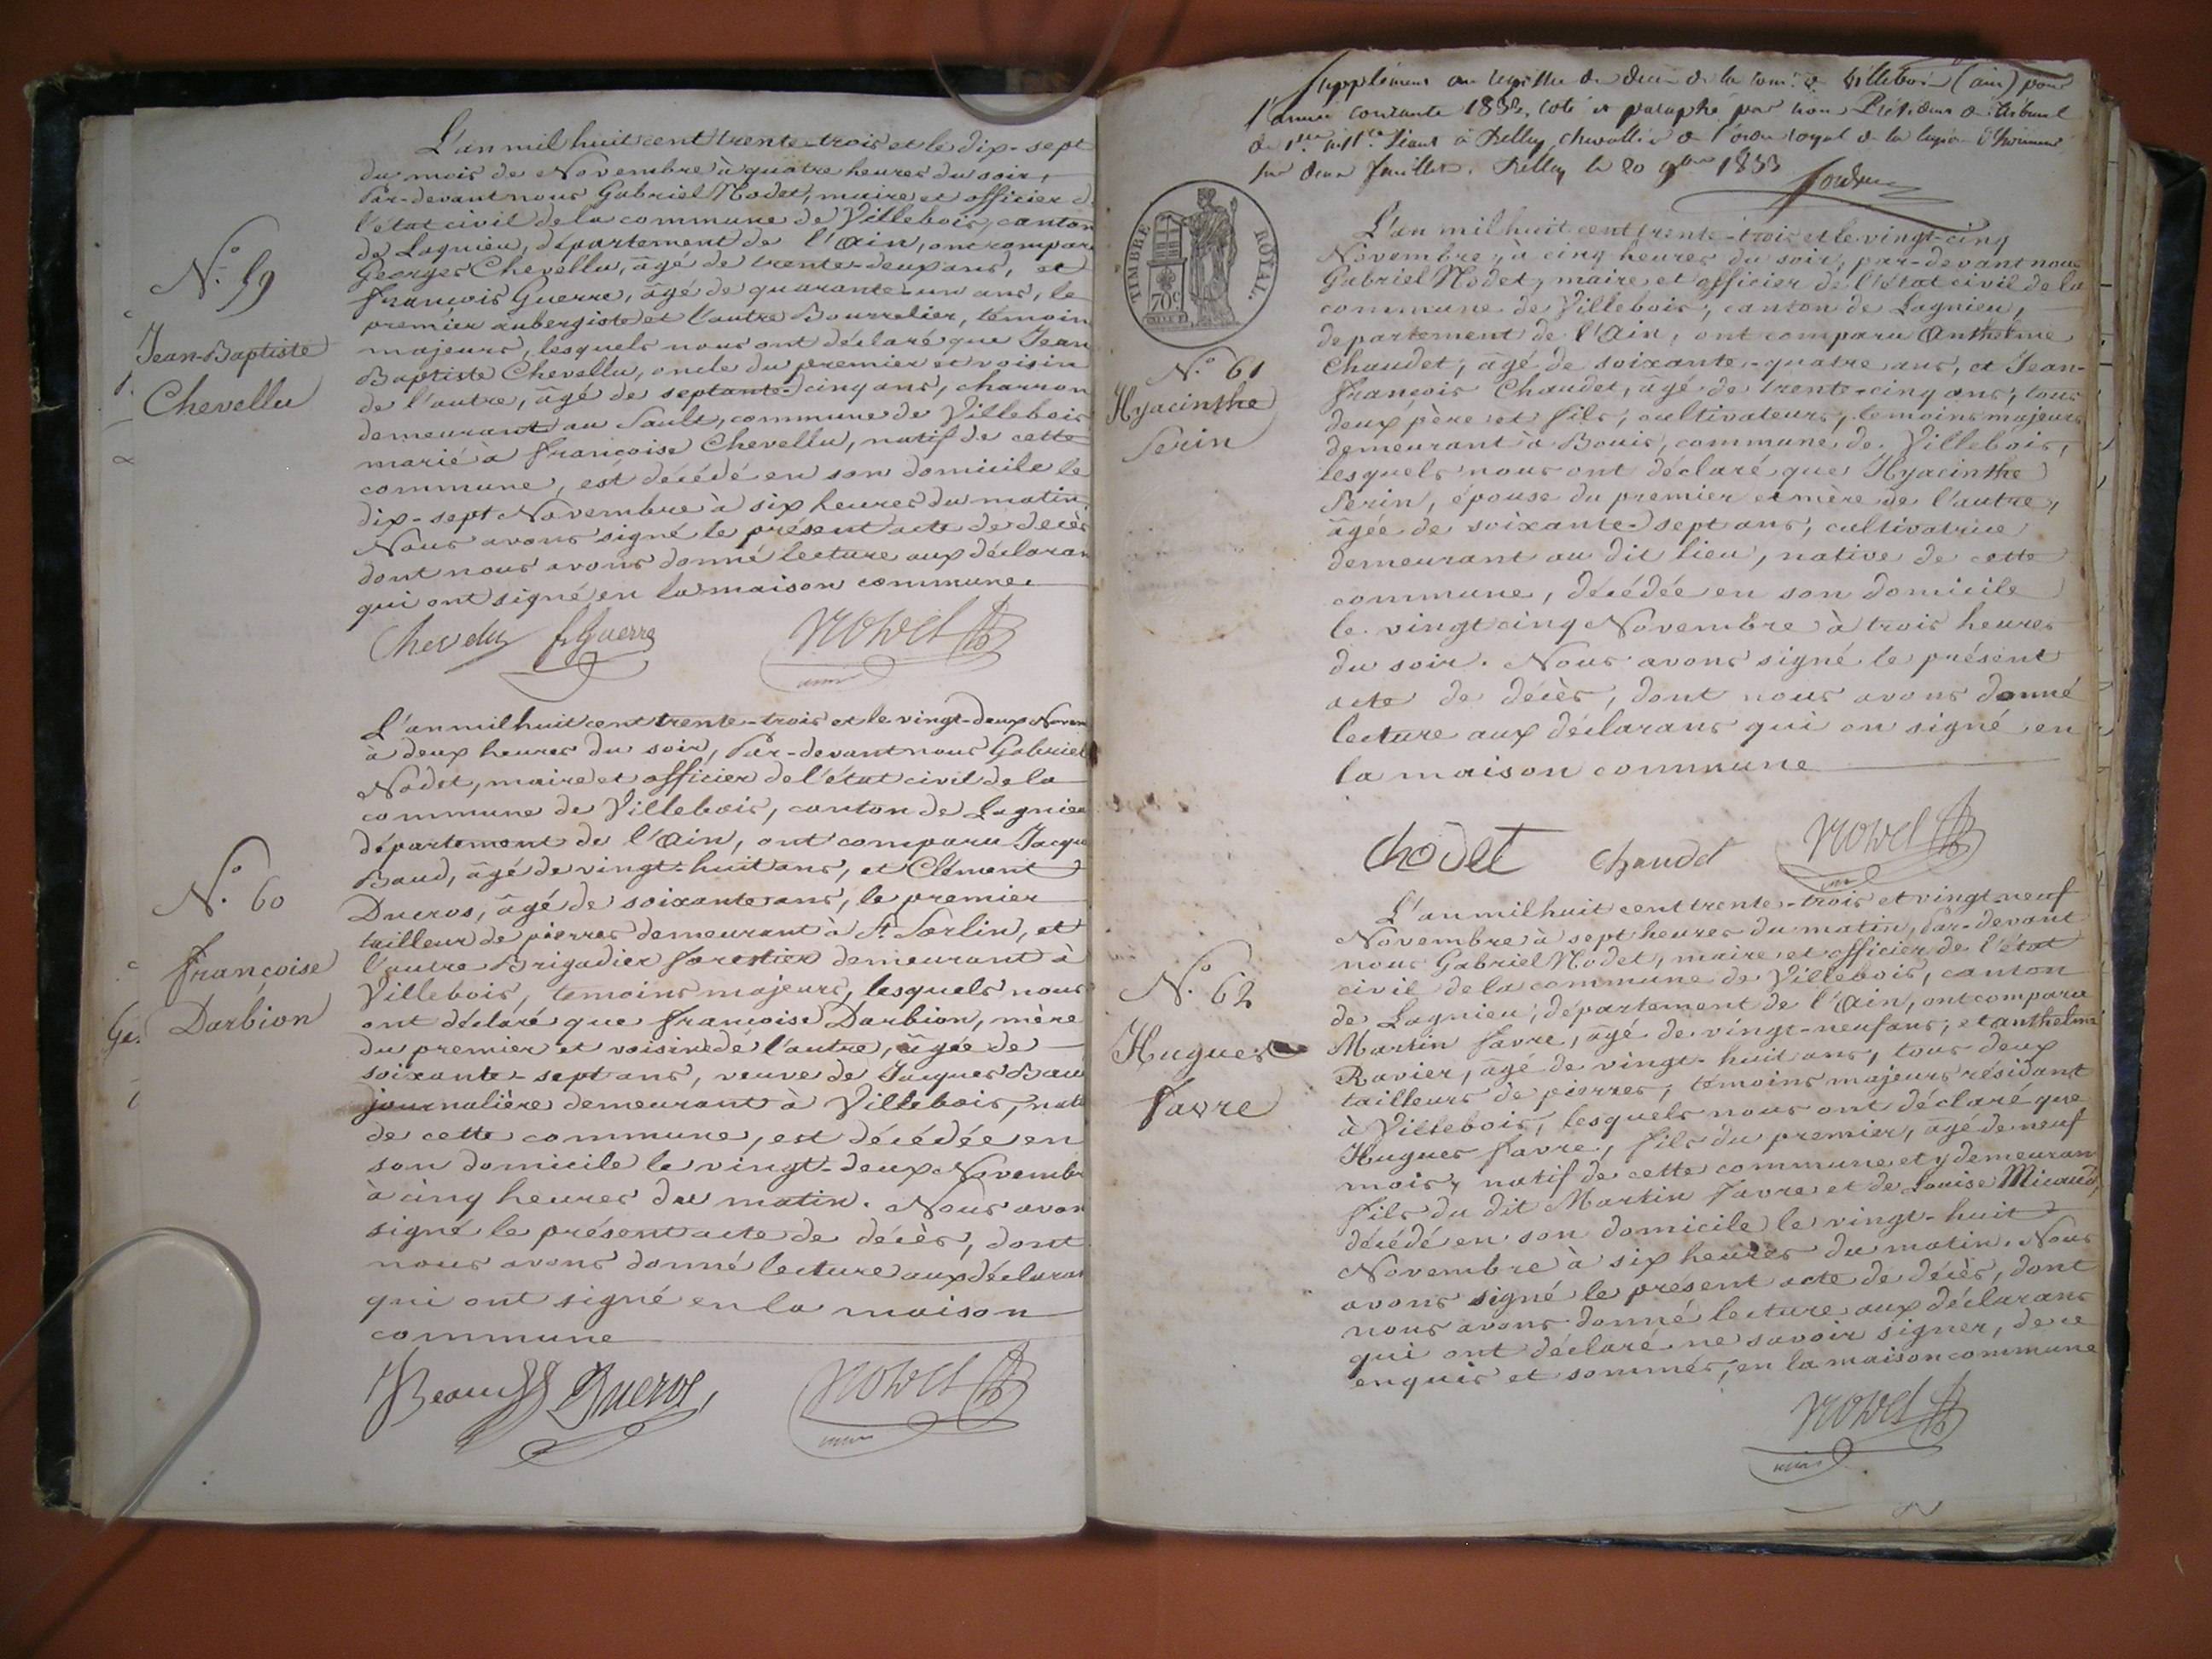 L'an mil huit cent trente-trois et le dix-sept
du mois de Novembre à quatre heures du soir,
Par-devant nous Gabriel Nodet, maire et officier d
l'état civil de la commune de Villebois, canton
de Lagnieu, département de l'Ain, ont compar
Georges Chevellu, âgé de trente-deux ans, et
françois Guerre, âgé de quarante-un ans, le
premier aubergiste et l'autre Bourrelier, témoin
majeurs, lesquels nous ont déclaré que Jean
Baptiste Chevellu, oncle du premier et voisin
de l'autre, âgé de septante-cinq ans, charron
demeurant au Sault, commune de Villebois
marié à françoise Chevellu, natif de cette
commune, est décédé en son domicile le
dix-sept Novembre à six heures du matin
Nous avons signé le présent acte de décès
dont nous avons donné lecture aux déclaran
qui ont signé en la maison commune.
N.° 59
Jean-Baptiste
Chevellu
Chevelu f Guerre Nodet
maire
L'an mil huit cent trente-trois et le vingt-deux Novem
à deux heures du soir, Par-devant nous Gabriel
Nodet, maire et officier de l'état civil de la
commune de Villebois, canton de Lagnieu
département de l'Ain, ont comparu Jacqu
Baud, âgé de vingt-huit ans, et Clément
Ducros, âgé de soixante ans, le premier
tailleur de pierres demeurant à St. Sorlin, et
l'autre Brigadier forestier demeurant à
Villebois, temoins majeurs, lesquels nous
ont déclaré que françoise Darbion, mère
du premier et voisine de l'autre, âgée de
soixante-sept ans, veuve de Jacques Bau
journalière demeurant à Villebois, nati
de cette commune, est décédée en
son domicile le vingt-deux Novembr
à cinq heures du matin. Nous avon
signé le présent acte de décès, dont
nous avons donné lecture aux déclaran
qui ont signé en la maison
commune
N.° 60
françoise
Darbion
Beaud Ducros Nodet
maire
Supplément au registre de décès de la com.e de Villebois (ain) pour
l'année courante 1833, coté et paraphé par nous Président du tribunal
de 1re instce séant à Belley, chevallier de l'ordre royal de la légion d'honneur
sur deux feuillets. Belley le 20 9bre 1833
TIMBRE ROYAL.
70c
N.° 61
Hyacinthe
Serin
L'an mil huit cent trente-trois et le vingt-cinq
Novembre, à cinq heures du soir, par-devant nous
Gabriel Nodet, maire et officier de l'état civil de la
commune de Villebois, canton de Lagnieu,
departement de l'Ain, ont comparu Anthelme
Chaudet, âgé de soixante-quatre ans, et Jean-
françois Chaudet, agé de trente-cinq ans, tous
deux père et fils, cultivateurs, temoins majeurs
demeurant à Bouis, commune de Villebois,
lesquels nous ont déclaré que Hyacinthe
Serin, épouse du premier et mère de l'autre,
âgée de soixante-sept ans, cultivatrice
demeurant au dit lieu, native de cette
commune, décédée en son domicile
le vingt cinq Novembre à trois heures
du soir. Nous avons signé le présent
acte de décès, dont nous avons donné
lecture aux déclarans qui on signé en
la maison commune
Chodet Chaudet Nodet
N.° 62
Hugues
favre
L'an mil huit cent trente-trois et vingt-neuf
Novembre à sept heures du matin, Par-devant
nous Gabriel Nodet, maire et officier de l'état
civil de la commune de Villebois, canton
de Lagnieu, département de l'Ain, ont comparu
Martin favre, âgé de vingt-neuf ans, et anthelme
Ravier, âgé de vingt-huit ans, tous deux
tailleurs de pierres, témoins majeurs résidant
à Villebois, lesquels nous ont déclaré que
Hugues favre, fils du premier, âgé de neuf
mois, natif de cette commune et y demeuran
fils du dit Martin favre et de Louise Micaud,
décédé en son domicile le vingt-huit
Novembre à six heures du matin. Nous
avons signé le présent acte de décès, dont
nous avons donné lecture aux déclarans
qui ont déclaré ne savoir signer, de ce
enquis et sommés, en la maison commune
Nodet
maire